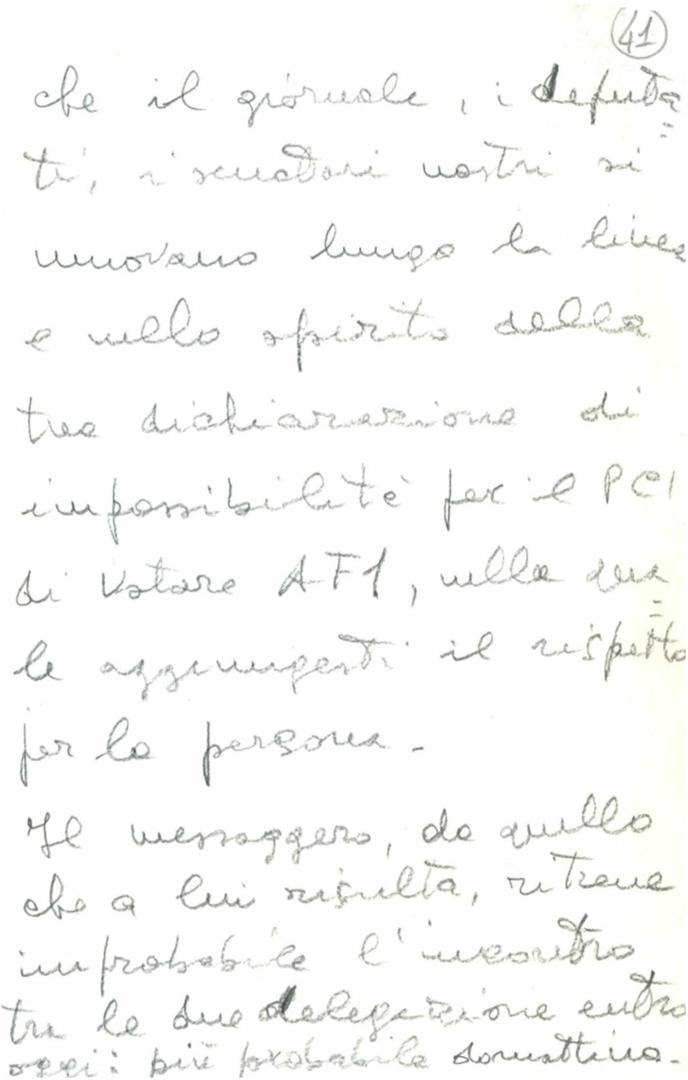 41
che il giornale, i deputa=
ti, i senatori nostri si
muovano lungo la linea
e nello spirito della
tua dichiarazione di
impossibilità per il PCI
di votare AF1, nella qua=
le aggiungesti il rispetto
per la persona -
Il messaggero, da quello
che a lui risulta, ritiene
improbabile l'incontro
tra le due delegazione entro
oggi: più probabile domattina -